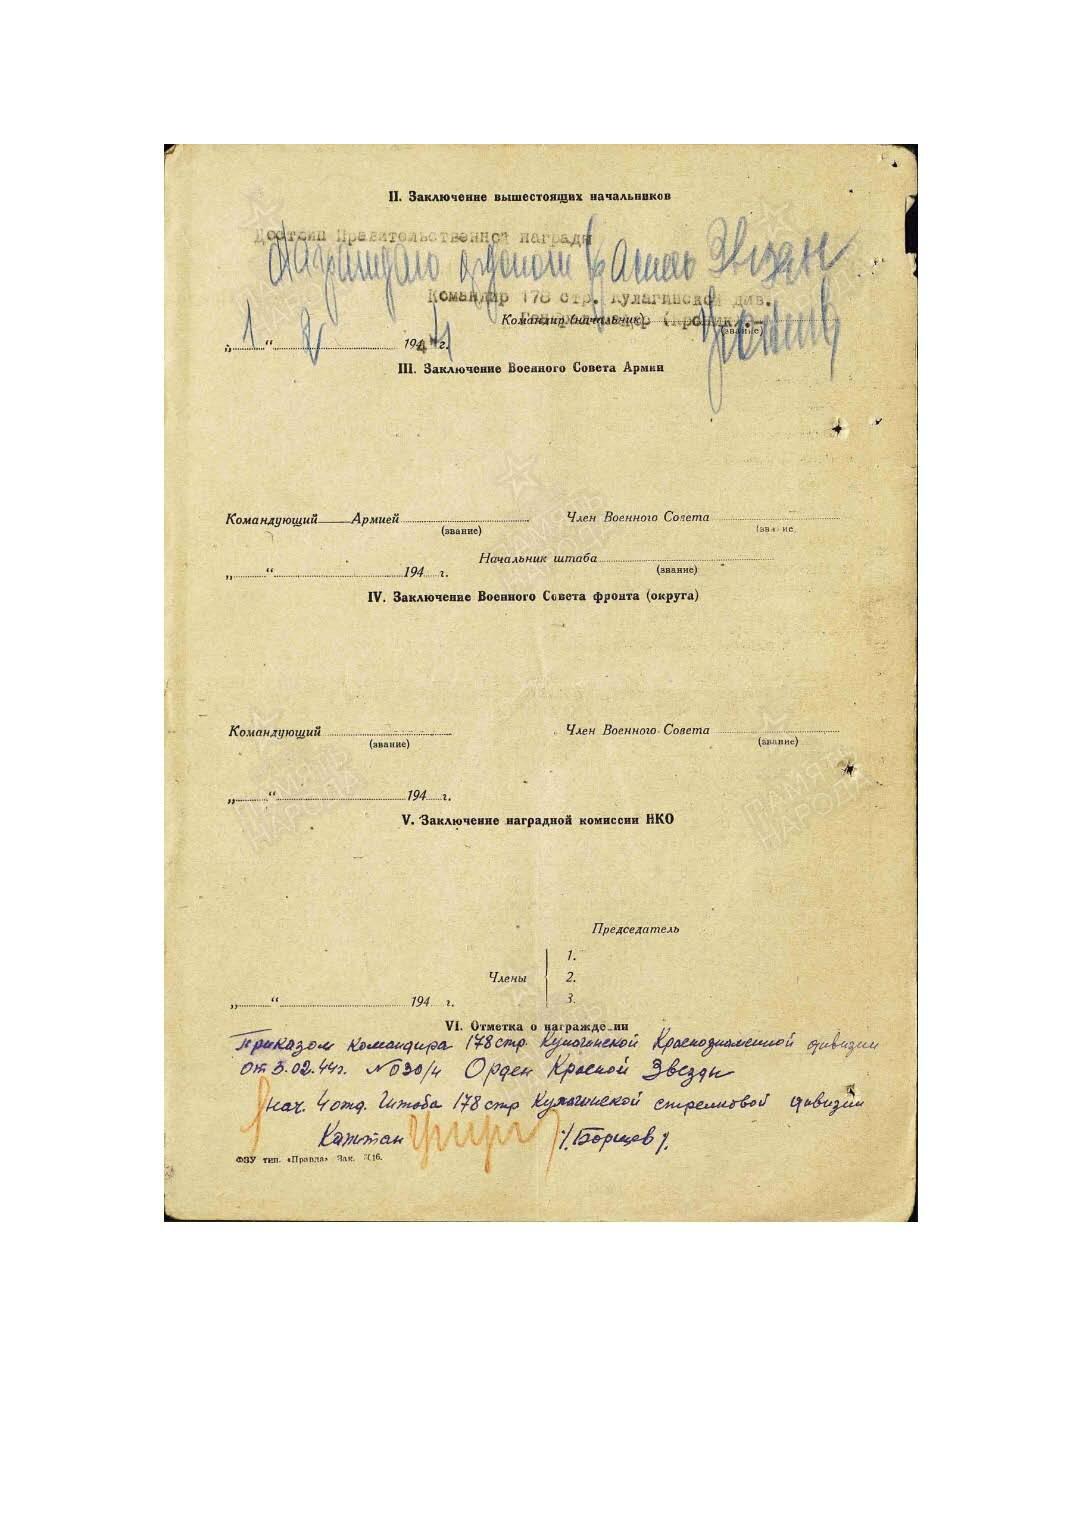 II. Заключение вышестоящих начальников
Достоин Правительственной награды
Награждаю орденом Красная Звезда
Командир 178 стр. Кулагинской див.
Командир (начальник)
(звание)
„1“ 2 1944 г.
III. Заключение Военного Совета Армии
Командующий Армией Член Военного Совета
(звание) (звание)
Начальник штаба
„ “ 194 г. (звание)
IV. Заключение Военного Совета фронта (округа)
Командующий Член Военного Совета
(звание) (звание)
„ “ 194 г.
V. Заключение наградной комиссии НКО
Председатель
1.
Члены 2.
„ “ 194 г. 3.
VI. Отметка о награждении
Приказом командира 178 стр Кулагинской Краснознаменной дивизии
от 3.02.44г. №030/н Орден Красной Звезды
Нач. 4 отд. Штаба 178 стр Кулагинской стрелковой дивизии
Капитан /Борщев/.
ФЗУ тип. «Правда» Зак.
ПАМЯТЬ НАРОДА